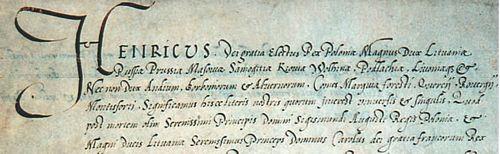 HENRICUS Dei gratia Electus Rex Poloniæ Magnus Dux Lituaniæ
Russiæ Prussiæ Masoviæ Samogitiæ Kiowiæ Wolhiniæ Podlachiæ Livoniæq &
Nec non Dux Andium Borboniorum & Alvernorum Comes Marquæ foresti Quercij Rovergij
Montisforti Significamus hisce literis nostris quorum interest universis & singulis Quod
post mortem olim Serenissimi Principis Domini Sigismundi Augusti Regis Poloniæ &
Magni Ducis Lituaniæ Serenissimus Princeps Dominus Carolus dei gratia francorum Rex